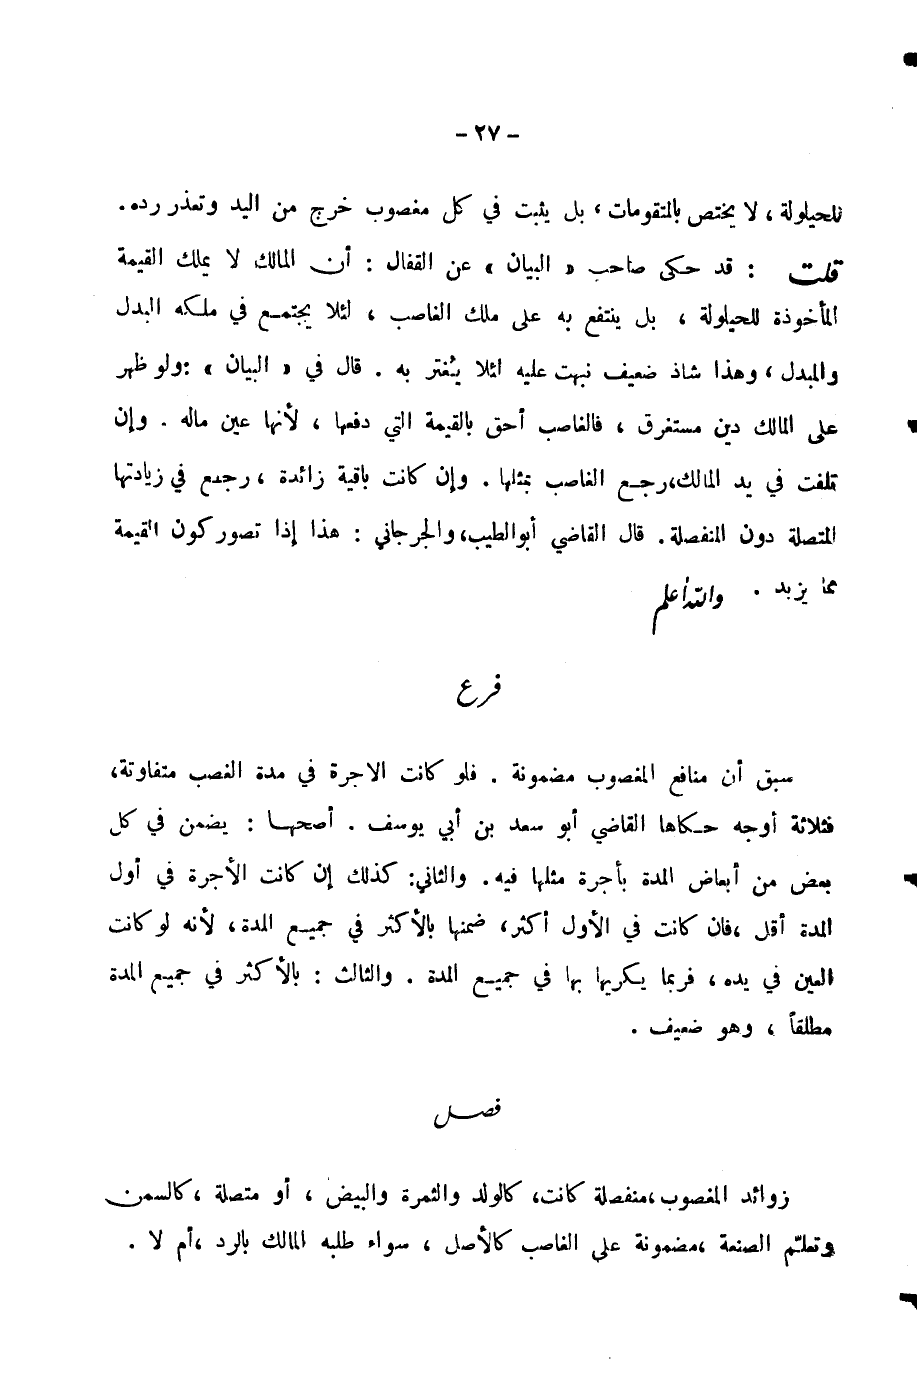 - ٢٧ -
للحيلولة ، لا يختص بالمتقومات ، بل يثبت في كل مغصوب خرج من اليد وتعذر رده .
قلت : قد حكى صاحب « البيان » عن القفال : أن المالك لا يملك القيمة
المأخوذة للحيلولة ، بل ينتفع به على ملك الغاصب ، لئلا يجتمع في ملكه البدل
والمبدل ، وهذا شاذ ضعيف نبهت عليه لئلا يُغتر به . قال في « البيان » : ولو ظهر
على المالك دين مستغرق ، فالغاصب أحق بالقيمة التي دفعها ، لأنها عين ماله . وإن
تلفت في يد المالك، رجع الغاصب بمثلها . وإن كانت باقية زائدة ، رجع في زيادتها
المتصلة دون المنفصلة . قال القاضي أبو الطيب، والجرجاني : هذا إذا تصور كون القيمة
مما يزيد . والله أعلم
فرع
سبق أن منافع المغصوب مضمونة . فلو كانت الاجرة في مدة الغصب متفاوتة،
فثلاثة أوجه حكاها القاضي أبو سعد بن أبي يوسف . أصحها : يضمن في كل
بعض من أبعاض المدة بأجرة مثلها فيه . والثاني : كذلك إن كانت الأجرة في أول
المدة أقل ، فان كانت في الأول أكثر، ضمنها بالأكثر في جميع المدة ، لأنه لو كانت
العين في يده ، فربما يكريها بها في جميع المدة . والثالث : بالأكثر في جميع المدة
مطلقاً ، وهو ضعيف .
فصل
زوائد المغصوب ، منفصلة كانت، كالولد والثمرة والبيض ، أو متصلة ، كالسمن
وتعلّم الصنعة ، مضمونة على الغاصب كالأصل ، سواء طلبه المالك بالرد ، أم لا .